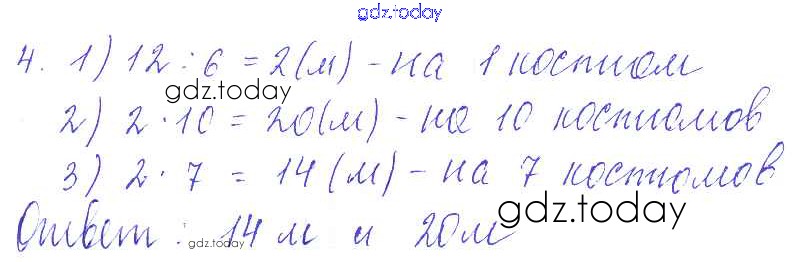 gdz.today
4. 1) 12 : 6 = 2 (м) - на 1 костюм
gdz.today
2) 2 · 10 = 20 (м) - на 10 костюмов
3) 2 · 7 = 14 (м) - на 7 костюмов
Ответ : 14 м и 20 м
gdz.today
gdz.today